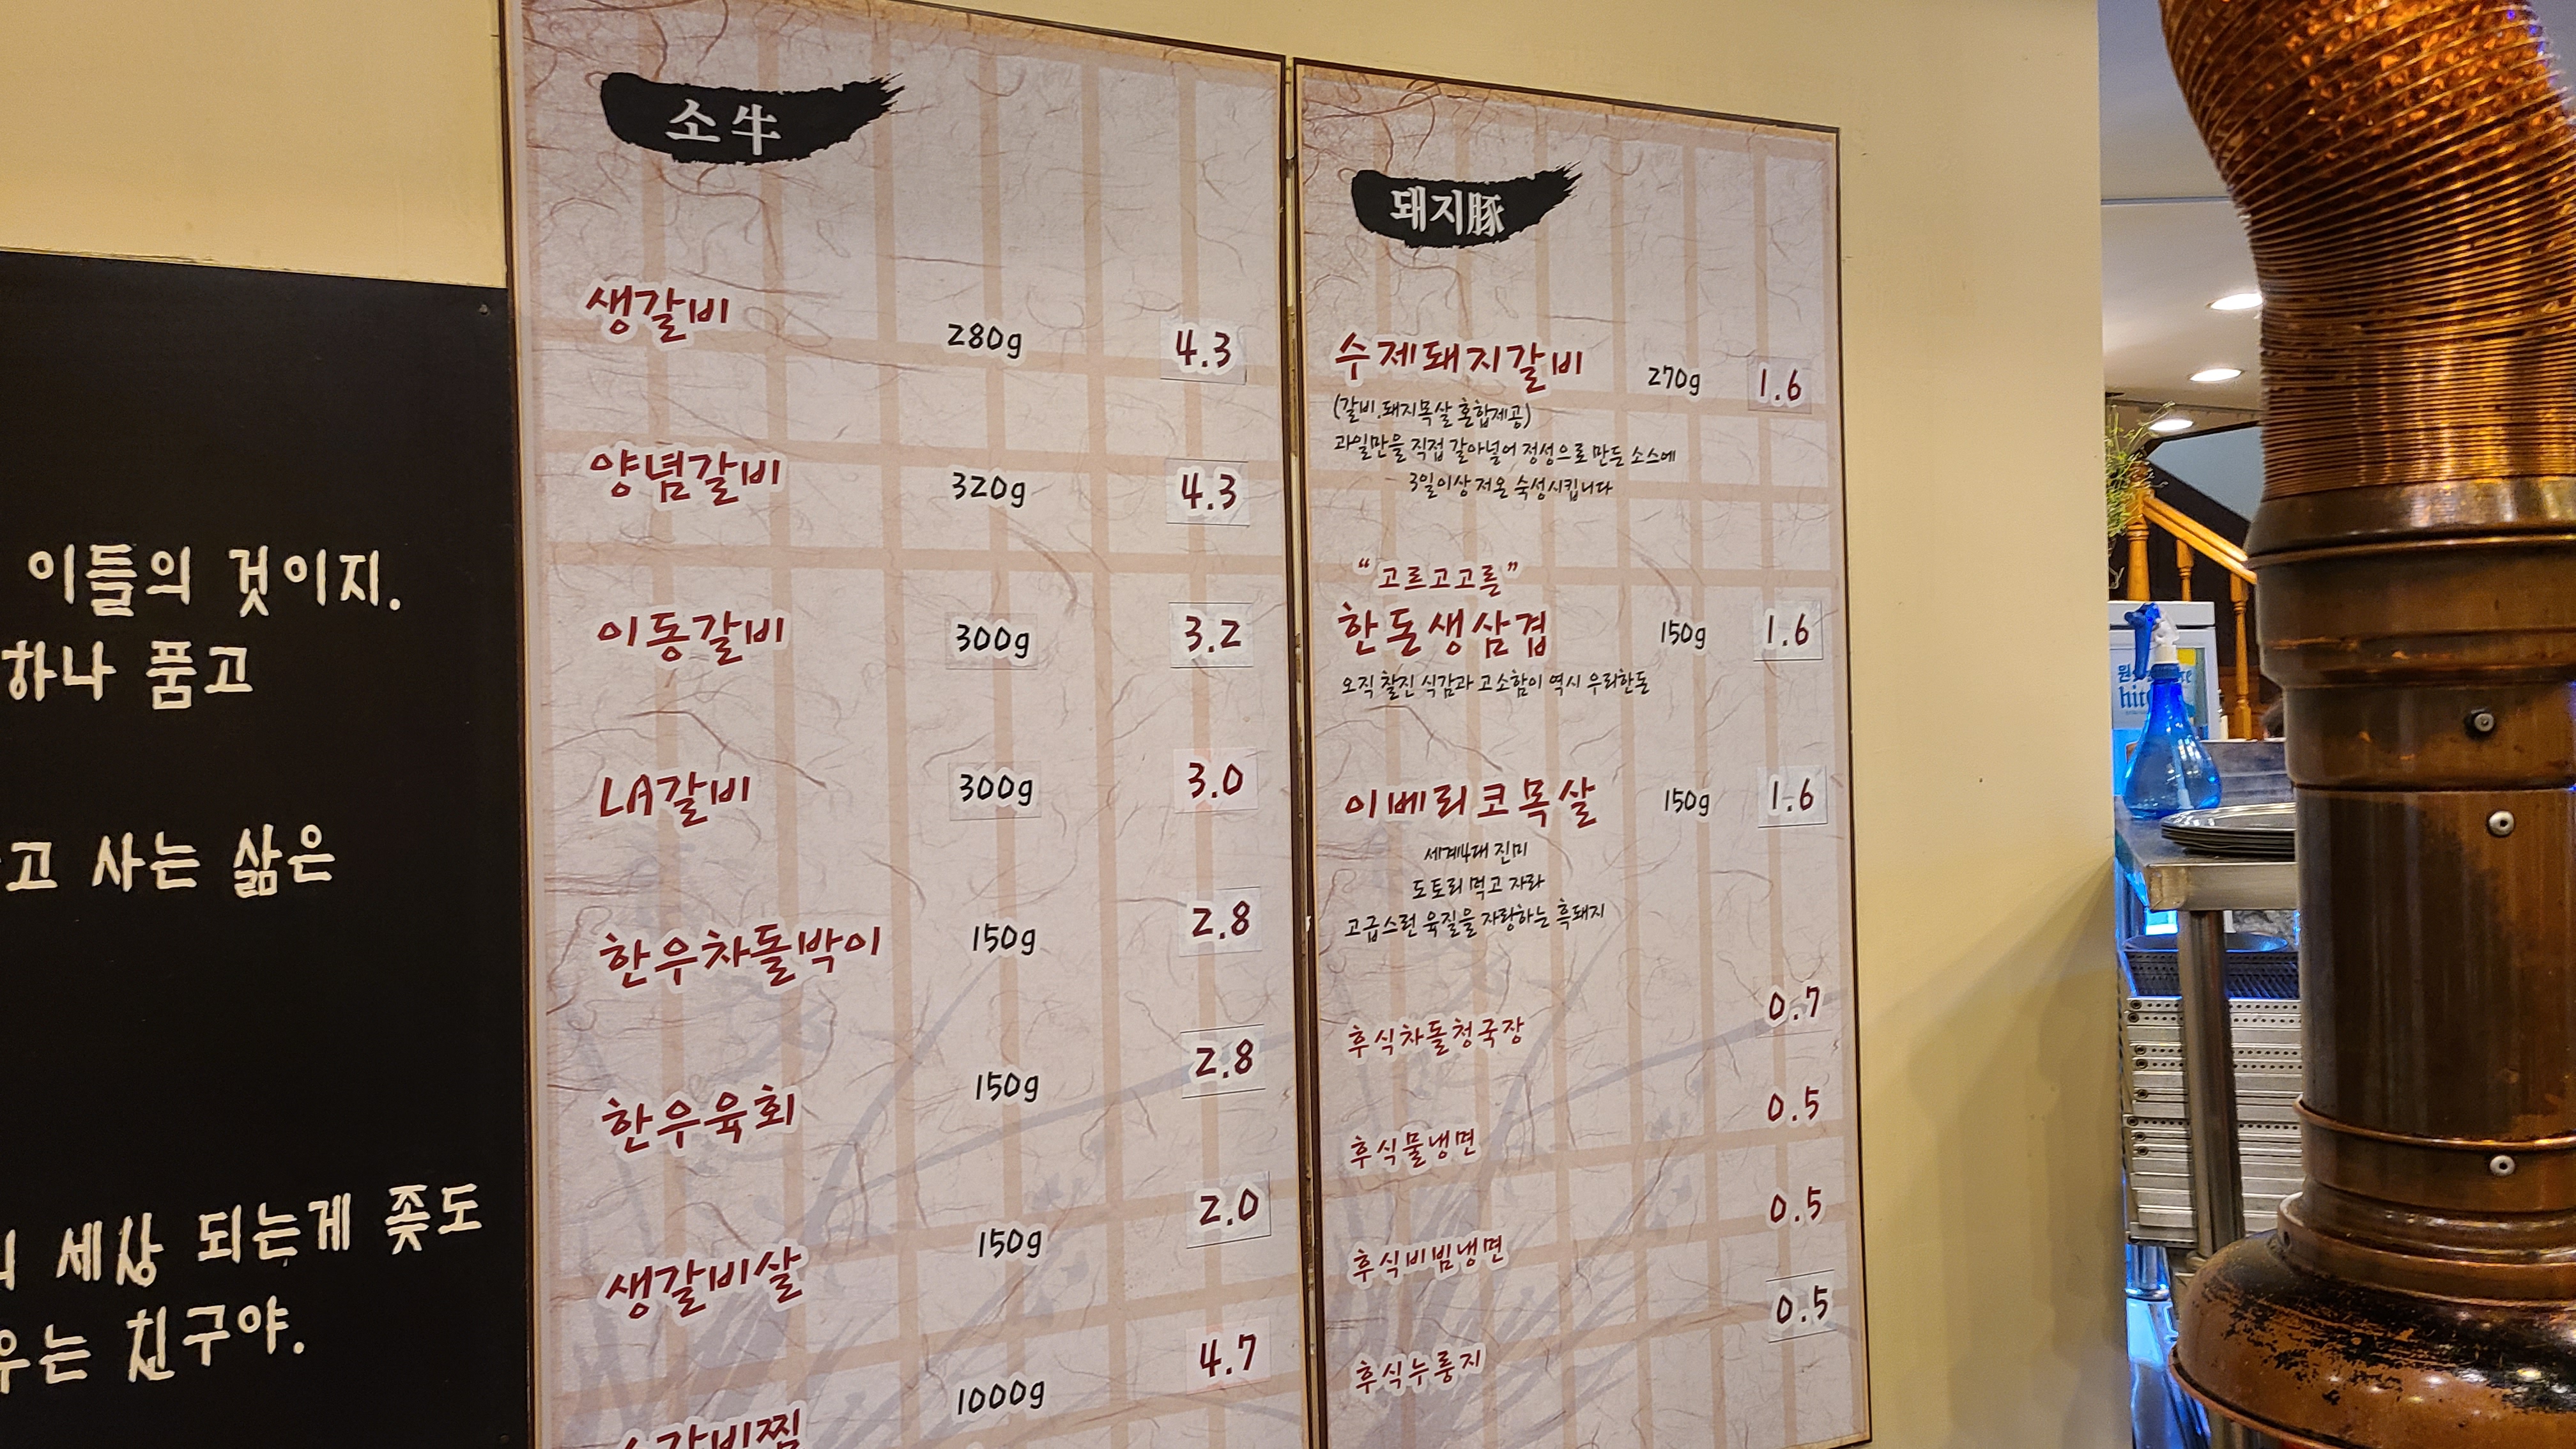 이들의 것이지.
하나 품고
고 사는 삶은
세상 되는게 좆도
우는 친구야.
소牛
생갈비 280g 4.3
양념갈비 320g 4.3
이동갈비 300g 3.2
LA갈비 300g 3.0
한우차돌박이 150g 2.8
한우육회 150g 2.8
생갈비살 150g 2.0
갈비찜 1000g 4.7
돼지豚
수제돼지갈비 270g 1.6
(갈비.돼지목살 혼합제공)
과일만을 직접 갈아넣어 정성으로 만든 소스에
3일이상 저온 숙성시킵니다
"고르고고른"
한돈생삼겹 150g 1.6
오직 찰진 식감과 고소함이 역시 우리한돈
이베리코목살 150g 1.6
세계4대 진미
도토리 먹고 자라
고급스런 육질을 자랑하는 흑돼지
후식차돌청국장 0.7
후식물냉면 0.5
후식비빔냉면 0.5
후식누룽지 0.5